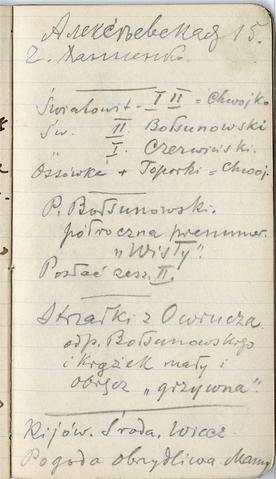 Алексѣевская 15.
г. Ханенко.
Światowit - I II = Chwojko
Św. II. Bołsunowski
" I. Czerwiński.
Ossówka + Toporki = Chwoj.
P. Bołsunowski.
półroczna prenumer.
"Wisły".
Posłać zesz. II.
Strzałki z Owrucza
odp. Bołsunowskego
i krążek mały i
obrącz "grzywna".
Kijów. Środa. Wiecz.
Pogoda obrzydliwa. Mamy